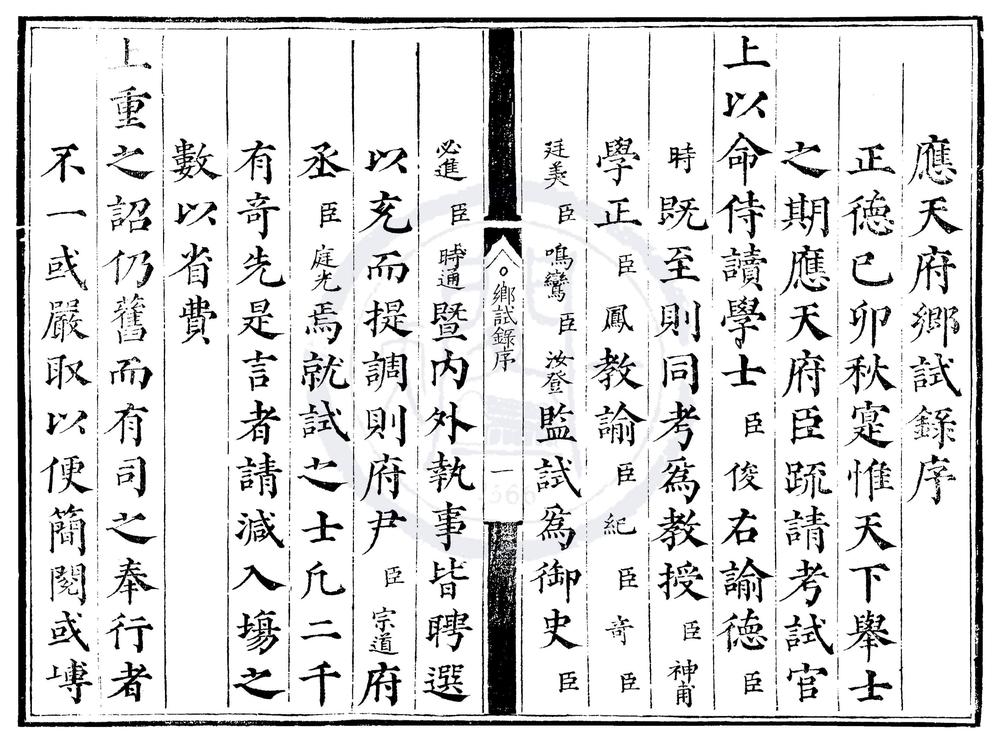 應天府鄉試錄序
正德己卯秋寔惟天下舉士
之期應天府臣疏請考試官
上以命侍讀學士臣俊右諭德臣
時既至則同考爲教授臣神甫
學正臣鳳教諭臣紀臣竒臣
廷美臣鳴鸞臣汝登監試爲御史臣
鄉試錄序
一
必進臣時通暨内外執事皆聘選
以充而提調則府尹臣宗道府
丞臣庭光焉就試之士凢二千
有竒先是言者請減入塲之
數以省費
上重之詔仍舊而有司之奉行者
不一或嚴取以便簡閱或博